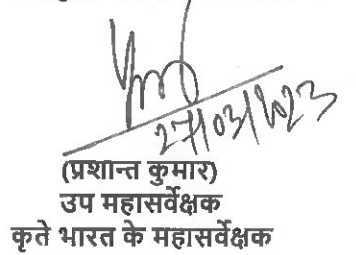 27/03/2023
(प्रशान्त कुमार)
उप महासर्वेक्षक
कृते भारत के महासर्वेक्षक